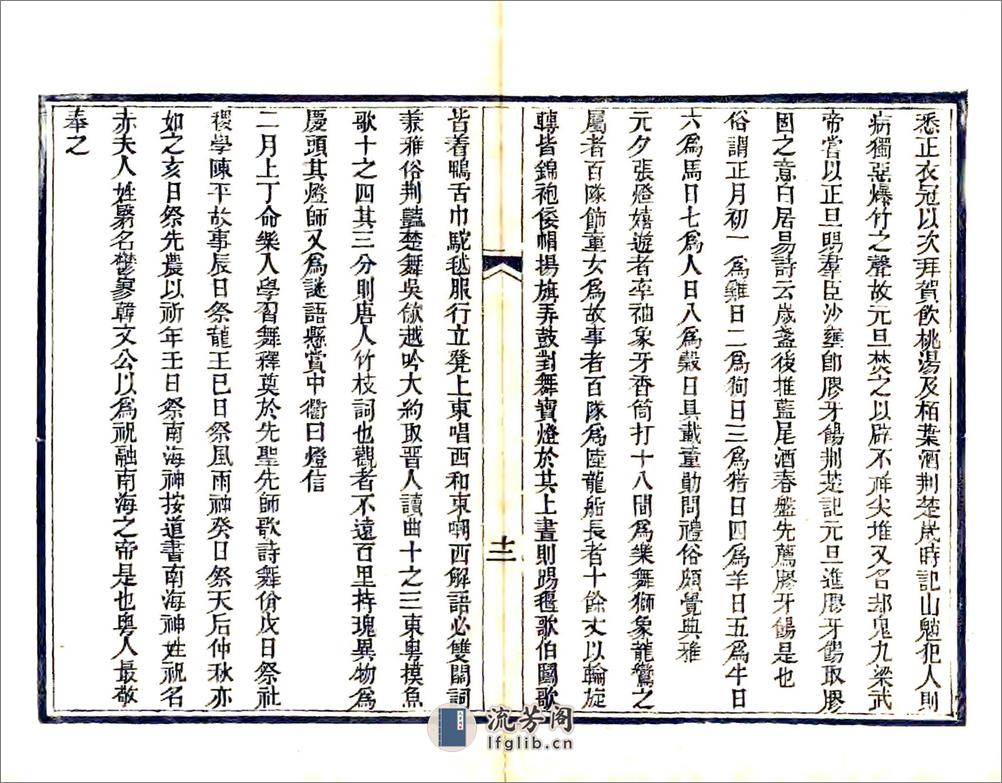 悉正衣冠以次拜賀飲桃湯及栢葉酒荆楚歲時記山魈犯人則
病獨惡爆竹之聲故元旦焚之以辟不祥尖堆又名却鬼丸梁武
帝嘗以正旦賜羣臣沙壅卽膠牙餳荆楚記元旦進膠牙餳取膠
固之意白居易詩云歲盞後推藍尾酒春盤先薦膠牙餳是也
俗謂正月初一為雞日二為狗日三為猪日四為羊日五為牛日
六為馬日七為人日八為穀日具載董勛問禮俗頗覺典雅
元夕張燈嬉遊者率袖象牙香筒打十八閒為樂舞獅象龍鸞之
屬者百隊飾童女為故事者百隊為陸龍船長者十餘丈以輪旋
轉皆錦袍倭帽揚旗弄鼓對舞寶燈於其上晝則踢毬歌伯嚚歌
十二
皆着鴨舌巾駝毧服行立凳上東唱西和東嘲西解語必雙關詞
兼雅俗荆豔楚舞吳歈越吟大約取晋人讀曲十之三東粤摸魚
歌十之四其三分則唐人竹枝詞也觀者不遠百里持瑰異物為
慶頭其燈師又為謎語懸賞中衢曰燈信
二月上丁命樂入學習舞釋奠於先聖先師歌詩舞佾戊日祭社
稷學陳平故事辰日祭龍王巳日祭風雨神癸日祭天后仲秋亦
如之亥日祭先農以祈年壬日祭南海神按道書南海神姓祝名
赤夫人姓翳名鬱寥韓文公以為祝融南海之帝是也粤人最敬
奉之
流芳阁
lfglib.cn